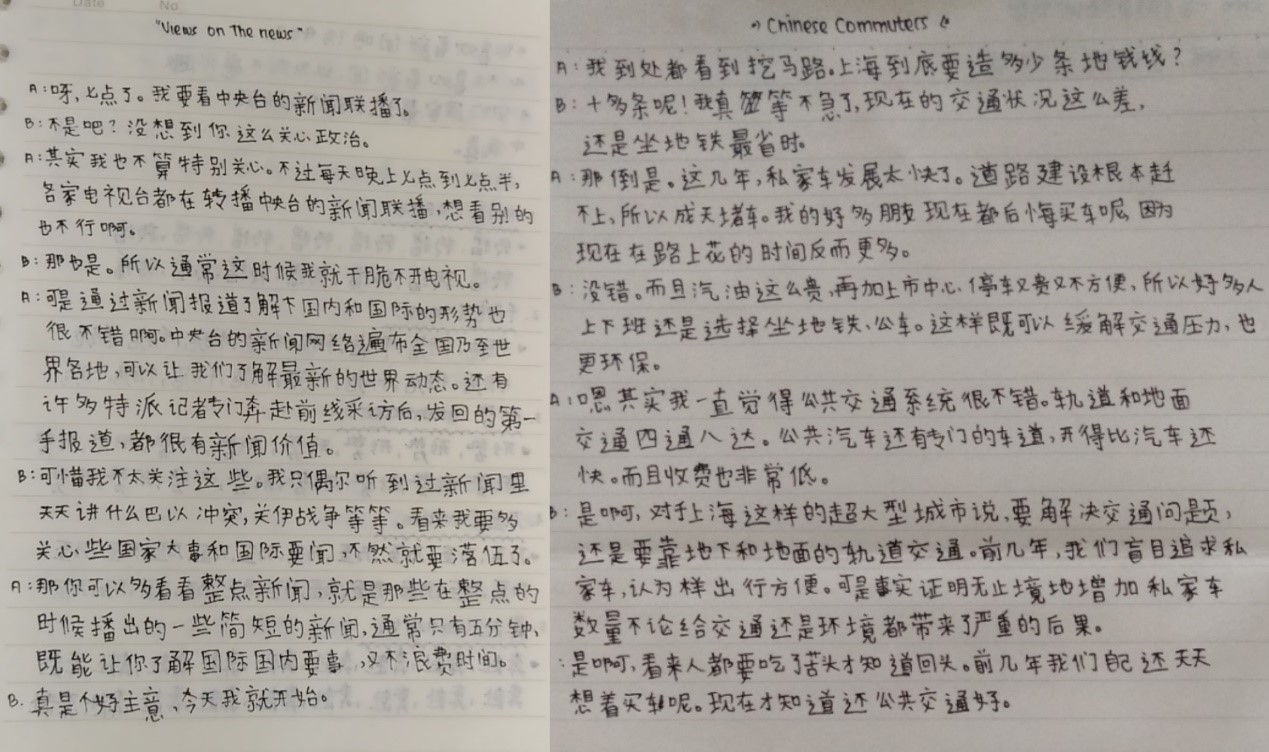 Date No.
"Views on The news"
A:呀,七点了。我要看中央台的新闻联播了。
B:不是吧?没想到你这么关心政治。
A:其实我也不算特别关心。不过每天晚上七点到七点半,
各家电视台都在转播中央台的新闻联播,想看别的
也不行啊。
B:那也是。所以通常这时候我就干脆不开电视。
A:可是通过新闻报道了解下国内和国际的形势也
很不错啊。中央台的新闻网络遍布全国乃至世
界各地,可以让我们了解最新的世界动态。还有
许多特派记者专门奔赴前线采访后,发回的第一
手报道,都很有新闻价值。
B:可惜我不太关注这些。我只偶尔听到过新闻里
天天讲什么巴以冲突,美伊战争等等。看来我要多
关心些国家大事和国际要闻,不然就要落伍了。
A:那你可以多看看整点新闻,就是那些在整点的
时候播出的一些简短的新闻,通常只有五分钟,
既能让你了解国际国内要事,又不浪费时间。
B.真是个好主意、今天我就开始。
Chinese Commuters
A:我到处都看到挖马路。上海到底要造多少条地铁线?
B:十多条呢!我真等不急了,现在的交通状况这么差,
还是坐地铁最省时。
A:那倒是。这几年,私家车发展太快了。道路建设根本赶
不上,所以成天堵车。我的好多朋友现在都后悔买车呢,因为
现在在路上花的时间反而更多。
B:没错。而且汽油这么贵,再加上市中心停车又贵又不方便,所以好多人
上下班还是选择坐地铁、公车。这样既可以缓解交通压力,也
更环保。
A:嗯其实我一直觉得公共交通系统很不错。轨道和地面
交通四通八达。公共汽车还有专门的车道,开得比汽车还
快。而且收费也非常低。
B:是啊,对于上海这样的超大型城市说,要解决交通问题,
还是要靠地下和地面的轨道交通。前几年,我们盲目追求私
家车,认为样出行方便。可是事实证明无止境地增加私家车
数量不论给交通还是环境都带来了严重的后果。
:是啊,看来人都要吃了苦头才知道回头。前几年我们自己还天天
想着买车呢。现在才知道还公共交通好。